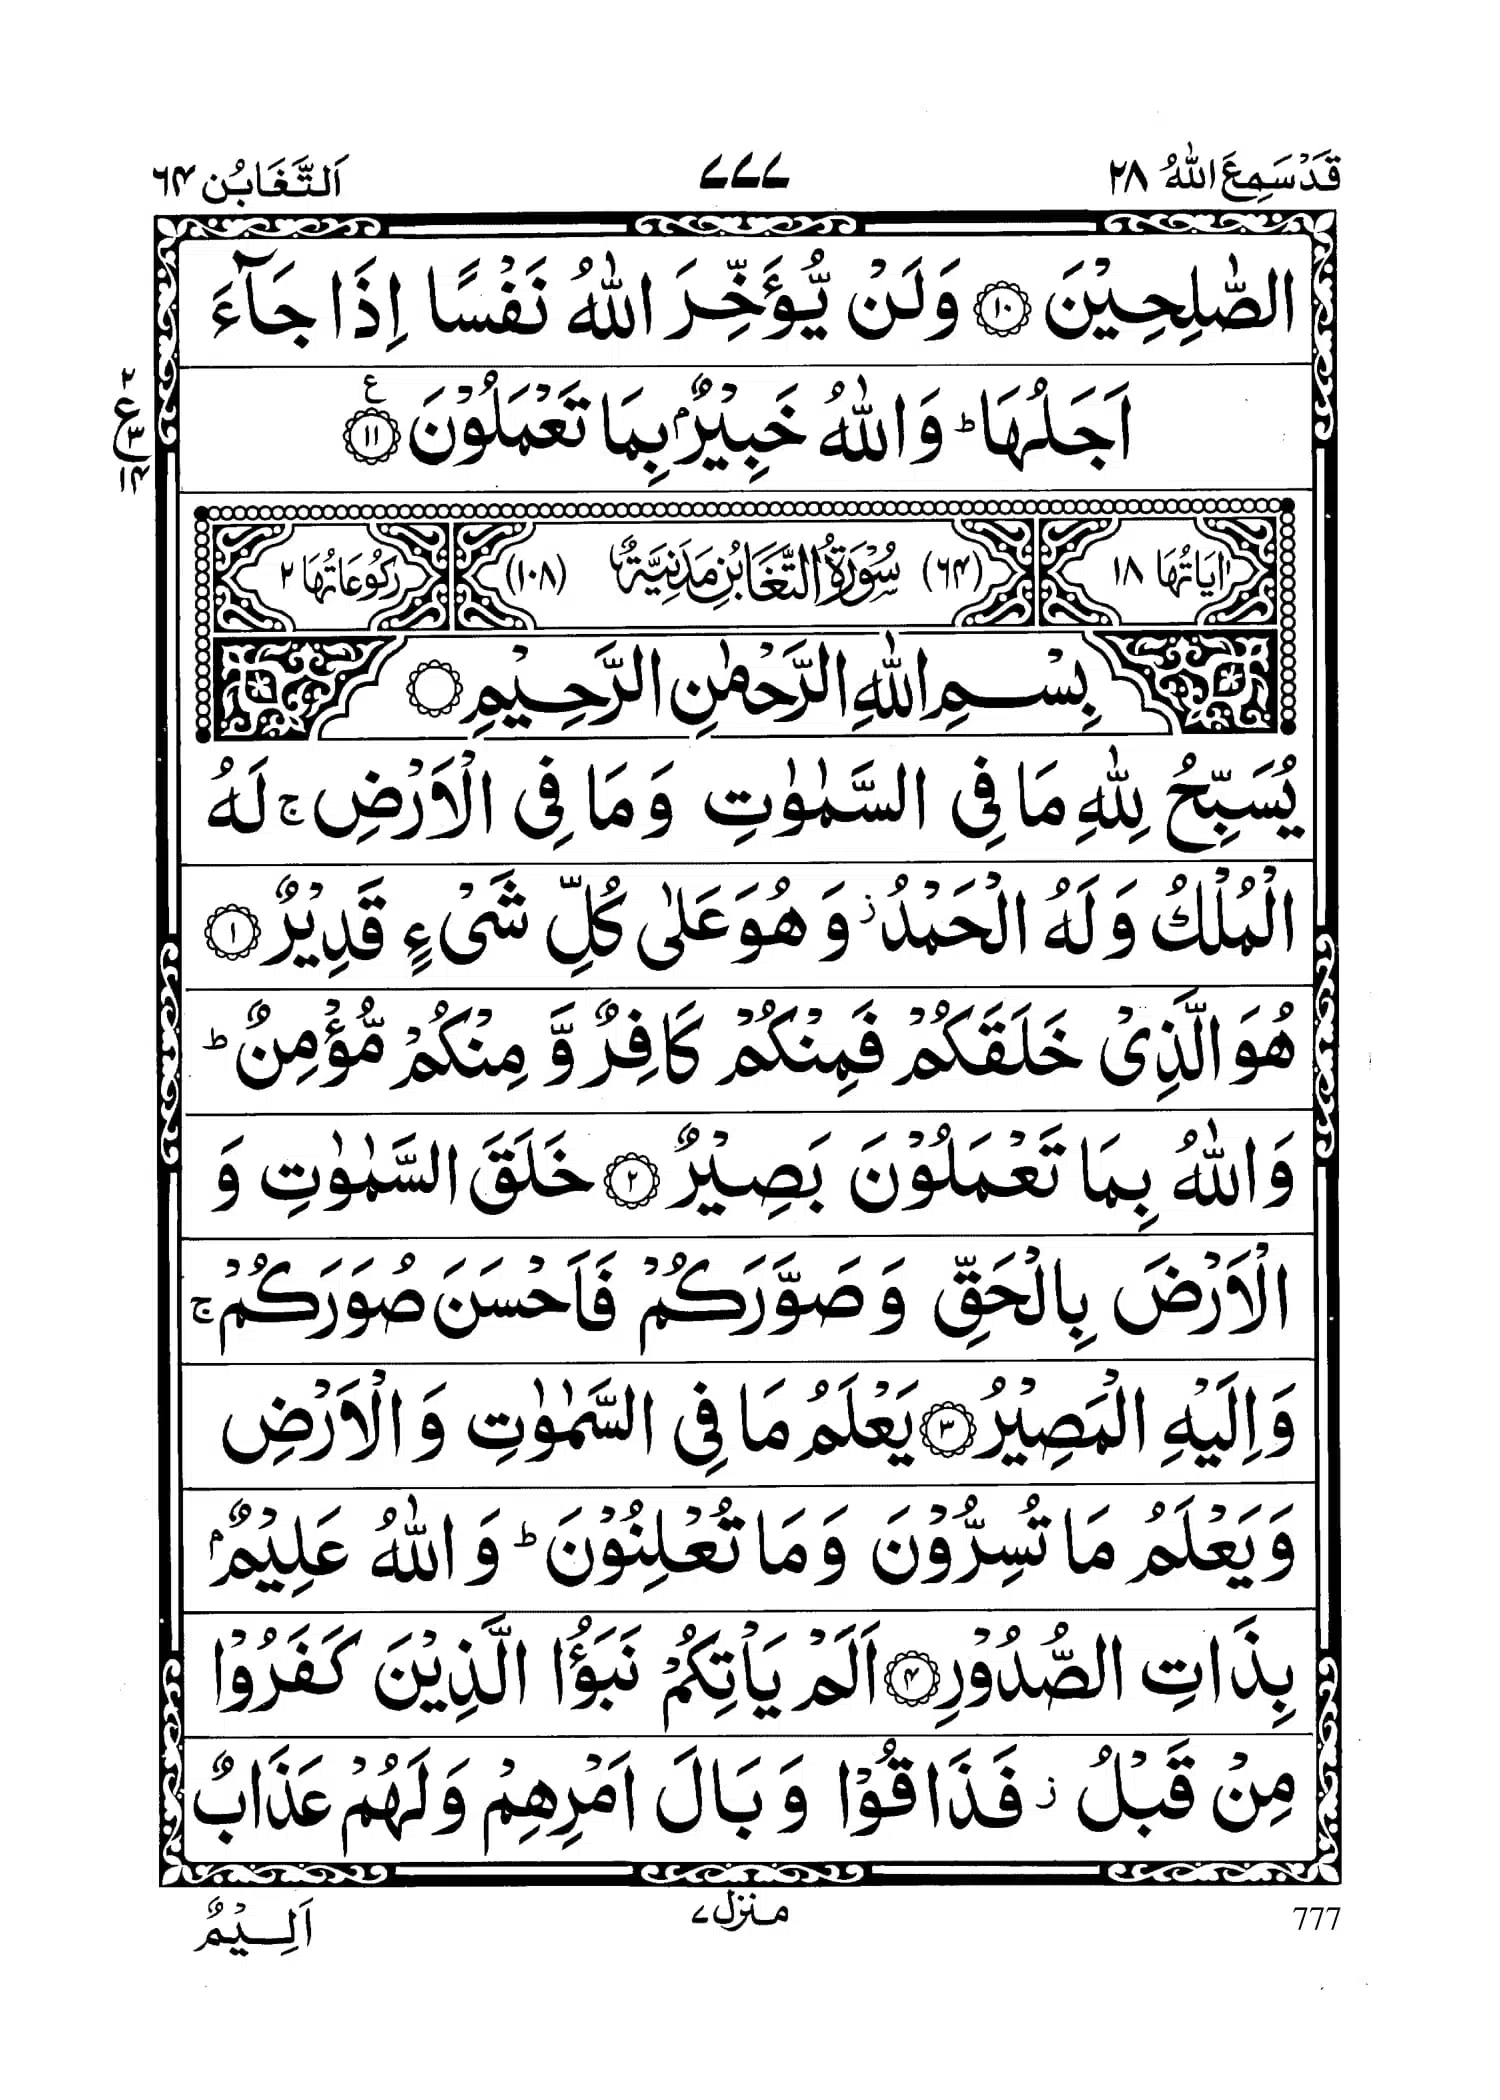 قَدْسَمِعَ اللّٰهُ ٢٨
٧٧٧
اَلتَّغَابُن ٦۴
الصّٰلِحِيْنَ ١٠ وَلَنْ يُّؤَخِّرَ اللّٰهُ نَفْسًا اِذَا جَآءَ
اَجَلُهَا ؕ وَاللّٰهُ خَبِيْرٌۢ بِمَا تَعْمَلُوْنَ ١١ ع
٢
ع
٣
١۴
اٰيَاتُهَا ١٨
(٦۴) سُوْرَةُ التَّغَابُنِ مَدَنِيَّةٌ (١٠٨)
رُكُوْعَاتُهَا ٢
بِسْمِ اللّٰهِ الرَّحْمٰنِ الرَّحِيْمِ
يُسَبِّحُ لِلّٰهِ مَا فِى السَّمٰوٰتِ وَمَا فِى الْاَرْضِ ۚ لَهُ
الْمُلْكُ وَلَهُ الْحَمْدُ ز وَهُوَ عَلٰى كُلِّ شَىْءٍ قَدِيْرٌ ١
هُوَ الَّذِىْ خَلَقَكُمْ فَمِنْكُمْ كَافِرٌ وَّ مِنْكُمْ مُّؤْمِنٌ ؕ
وَاللّٰهُ بِمَا تَعْمَلُوْنَ بَصِيْرٌ ٢ خَلَقَ السَّمٰوٰتِ وَ
الْاَرْضَ بِالْحَقِّ وَصَوَّرَكُمْ فَاَحْسَنَ صُوَرَكُمْ ۚ
وَاِلَيْهِ الْمَصِيْرُ ٣ يَعْلَمُ مَا فِى السَّمٰوٰتِ وَالْاَرْضِ
وَيَعْلَمُ مَا تُسِرُّوْنَ وَمَا تُعْلِنُوْنَ ؕ وَاللّٰهُ عَلِيْمٌۢ
بِذَاتِ الصُّدُوْرِ ۴ اَلَمْ يَاْتِكُمْ نَبَؤُا الَّذِيْنَ كَفَرُوْا
مِنْ قَبْلُ ز فَذَاقُوْا وَبَالَ اَمْرِهِمْ وَلَهُمْ عَذَابٌ
777
منزل ٧
اَلِيْمٌ